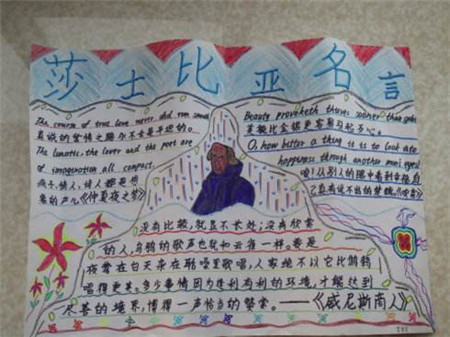 莎士比亚名言
The course of true love never did run smooth
真诚的爱情之路永不会是平坦的。
The lunatic, the lover and the poet are
of imagination all compact
疯子、情人、诗人都是想
象的产儿《仲夏夜之梦》
Beauty provoketh thieves sooner than gold
美貌比金银更容易引起歹心。
O, how bitter a thing it is to look into
happiness through another man's eyes
唉！从别人的眼中看到幸福，自
己真有说不出的酸楚
没有比较，就显不出长处；没有欣赏
的人，乌鸦的歌声也就和云雀一样。要是
夜莺在白天杂在聒噪里歌唱，人家绝不以它比鹪鹩
唱得更美。多少事情因为逢到有利的环境，才能达到
尽善的境界，博得一声恰当的赞赏。——《威尼斯商人》